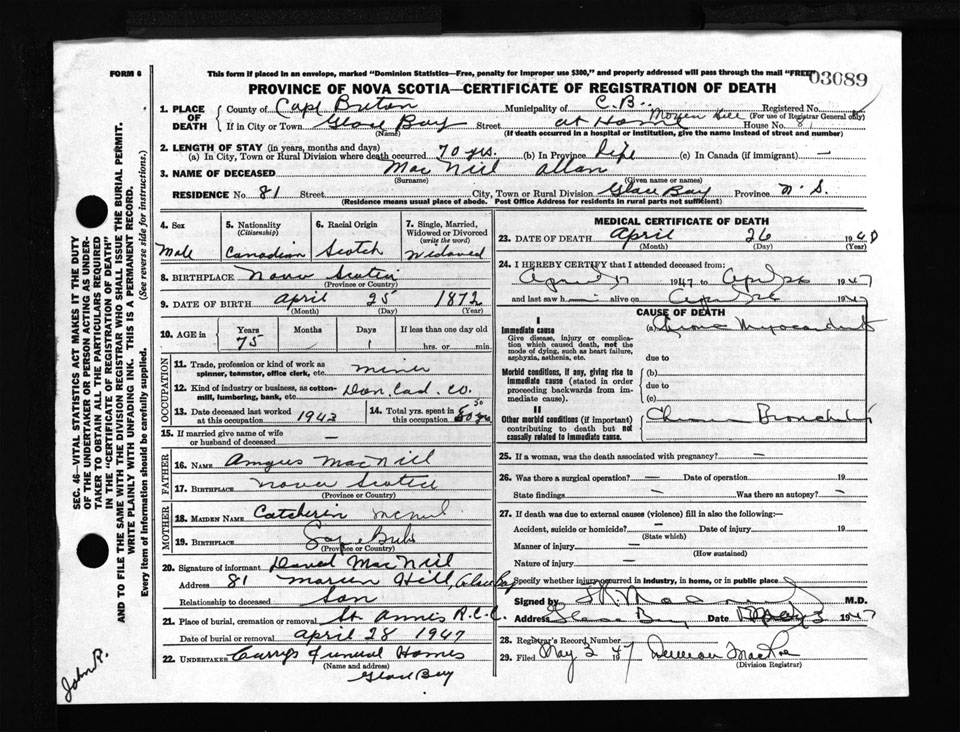 FORM 6
This form if placed in an envelope, marked "Dominion Statistics—Free, penalty for improper use $300," and properly addressed will pass through the mail "FREE"
03089
PROVINCE OF NOVA SCOTIA—CERTIFICATE OF REGISTRATION OF DEATH
1. PLACE OF DEATH
County of Cape Breton Municipality of C.B. Registered No.
(For use of Registrar General only)
If in City or Town Glace Bay Street at Home House No. 81
(Name) (If death occurred in a hospital or institution, give the name instead of street and number)
2. LENGTH OF STAY (in years, months and days)
(a) In City, Town or Rural Division where death occurred 70 yrs. (b) In Province Life (c) In Canada (if immigrant) —
3. NAME OF DECEASED Mac Neil Allan
(Surname) (Given name or names)
RESIDENCE No. 81 Street City, Town or Rural Division Glace Bay Province N.S.
(Residence means usual place of abode. Post Office Address for residents in rural parts not sufficient)
4. Sex
Male
5. Nationality
(Citizenship)
Canadian
6. Racial Origin
Scotch
7. Single, Married, Widowed or Divorced
(write the word)
Widowed
8. BIRTHPLACE Nova Scotia
(Province or Country)
9. DATE OF BIRTH April 25 1872
(Month) (Day) (Year)
10. AGE in Years Months Days If less than one day old
75 1 hrs. or min.
OCCUPATION
11. Trade, profession or kind of work as spinner, teamster, office clerk, etc. miner
12. Kind of industry or business, as cotton-mill, lumbering, bank, etc. Dom. Coal Co.
13. Date deceased last worked at this occupation 1943
14. Total yrs. spent in this occupation
15. If married give name of wife or husband of deceased —
FATHER
16. NAME Angus MacNeil
17. BIRTHPLACE Nova Scotia
(Province or Country)
MOTHER
18. MAIDEN NAME Catcherin McNeil
19. BIRTHPLACE
(Province or Country)
20. Signature of informant David MacNeil
Address 81 Hill, Glace Bay
Relationship to deceased Son
21. Place of burial, cremation or removal St Annes R.C.C.
Date of burial or removal April 28 1947
22. UNDERTAKER Currys Funeral Homes
(Name and address)
Glace Bay
MEDICAL CERTIFICATE OF DEATH
23. DATE OF DEATH April 26 194
(Month) (Day)
24. I HEREBY CERTIFY that I attended deceased from:
April 17 1947 to April 26 1947
and last saw h alive on April 26 1947
CAUSE OF DEATH
I
Immediate cause
Give disease, injury or complication which caused death, not the mode of dying, such as heart failure, asphyxia, asthenia, etc.
(a) Chronic Myocarditis
due to
Morbid conditions, if any, giving rise to immediate cause (stated in order proceeding backwards from immediate cause).
(b)
due to
(c)
II
Other morbid conditions (if important) contributing to death but not causally related to immediate cause.
Chronic Bronchitis
25. If a woman, was the death associated with pregnancy? —
26. Was there a surgical operation? — Date of operation 19
State findings — Was there an autopsy? —
27. If death was due to external causes (violence) fill in also the following:—
Accident, suicide or homicide? — Date of injury 19
(State which)
Manner of injury —
(How sustained)
Nature of injury —
Specify whether injury occurred in industry, in home, or in public place
Signed by M.D.
Address Glace Bay Date May 3 1947
28. Registrar's Record Number
29. Filed May 2 47
(Division Registrar)
SEC. 46—VITAL STATISTICS ACT MAKES IT THE DUTY
OF THE UNDERTAKER OR PERSON ACTING AS UNDER-
TAKER TO OBTAIN ALL THE PARTICULARS REQUIRED
IN THE "CERTIFICATE OF REGISTRATION OF DEATH"
AND TO FILE THE SAME WITH THE DIVISION REGISTRAR WHO SHALL ISSUE THE BURIAL PERMIT.
WRITE PLAINLY WITH UNFADING INK. THIS IS A PERMANENT RECORD.
Every item of information should be carefully supplied. (See reverse side for instructions.)
John R.